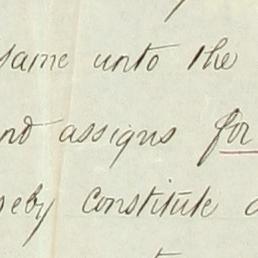 same unto the
and assigns for
hereby constitute